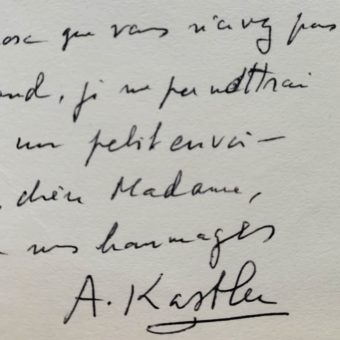 que vous n'avez pas
, je me permettrai
un petit envoi —
, chère Madame,
mes hommages
A. Kastler